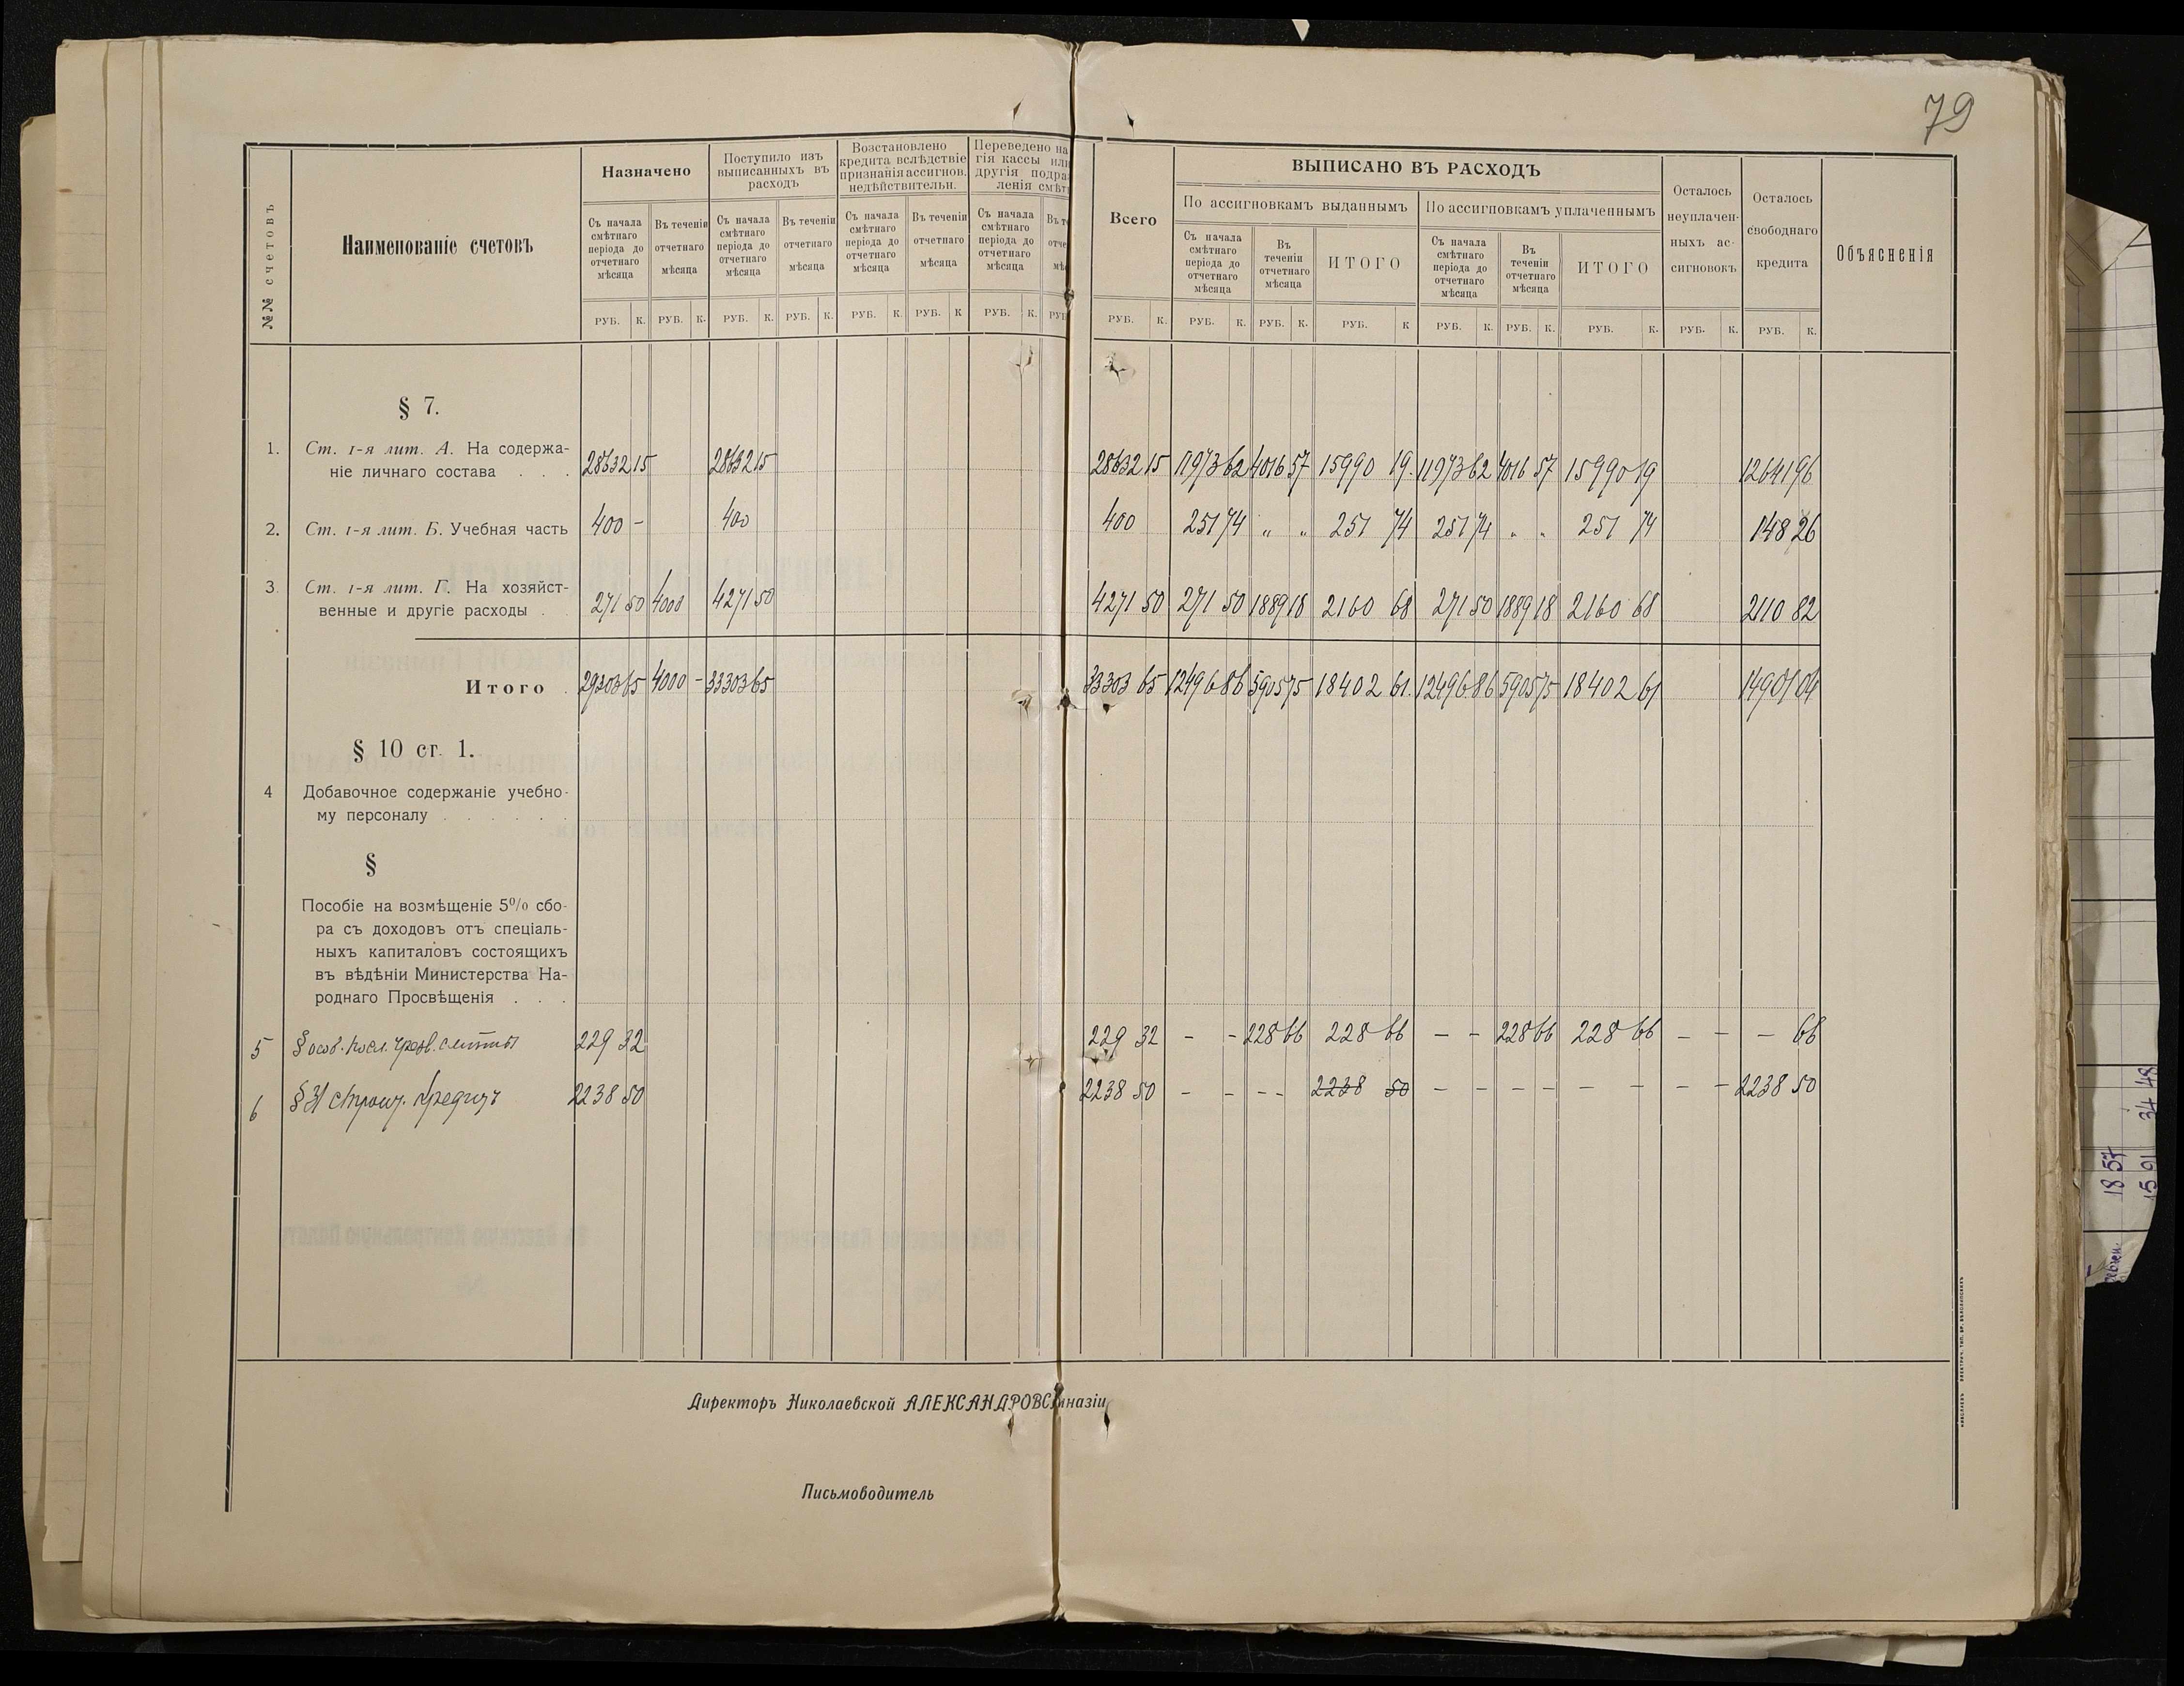 79
№№ счетовъ
Наименованіе счетовъ
Назначено
Поступило изъ
выписанныхъ въ
расходъ
Возстановлено
кредита вслѣдствіе
признанія ассигнов.
недѣйствительн.
Переведено на
гія кассы или
другія подра
ленія смѣт
Съ начала
смѣтнаго
періода до
отчетнаго
мѣсяца
Въ теченіи
отчетнаго
мѣсяца
Съ начала
смѣтнаго
періода до
отчетнаго
мѣсяца
Въ теченіи
отчетнаго
мѣсяца
Съ начала
смѣтнаго
періода до
отчетнаго
мѣсяца
Въ теченіи
отчетнаго
мѣсяца
Съ начала
смѣтнаго
періода до
отчетнаго
мѣсяца
Въ т
отче
мѣс
Всего
ВЫПИСАНО ВЪ РАСХОДЪ
По ассигновкамъ выданнымъ
По ассигновкамъ уплаченнымъ
Съ начала
смѣтнаго
періода до
отчетнаго
мѣсяца
Въ
теченіи
отчетнаго
мѣсяца
ИТОГО
Съ начала
смѣтнаго
періода до
отчетнаго
мѣсяца
Въ
теченіи
отчетнаго
мѣсяца
ИТОГО
Осталось
неуплачен-
ныхъ ас-
сигновокъ
Осталось
свободнаго
кредита
Объясненія
РУБ. К. РУБ. К. РУБ. К. РУБ. К. РУБ. К. РУБ. К РУБ. К. РУБ
РУБ. К. РУБ. К. РУБ. К. РУБ. К РУБ. К. РУБ. К. РУБ. К. РУБ. К. РУБ. К.
§ 7.
1. Ст. 1-я лит. А. На содержа-
ніе личнаго состава . . .
28632 15 28632 15 28632 15 11973 62 4016 57 15990 19. 11973 62 4016 57 15990 19 12641 96
2. Ст. 1-я лит. Б. Учебная часть
400 - 400 400 251 74 " " 251 74 251 74 " " 251 74 148 26
3. Ст. 1-я лит. Г. На хозяйст-
венные и другіе расходы .
271 50 4000 4271 50 4271 50 271 50 1889 18 2160 68 271 50 1889 18 2160 68 2110 82
Итого .
29303 65 4000 - 33303 65 33303 65 12496 86 5905 75 18402 61. 12496 86 5905 75 18402 61 14901 04
§ 10 ст. 1.
4 Добавочное содержаніе учебно-
му персоналу . . . . . .
§
Пособіе на возмѣщеніе 5% сбо-
ра съ доходовъ отъ спеціаль-
ныхъ капиталовъ состоящихъ
въ вѣдѣніи Министерства На-
роднаго Просвѣщенія . . .
5 § 229 32 229 32 - - 228 66 228 66 - - 228 66 228 66 - - - 66
6 § 31 строит. кредитъ 2238 50 2238 50 - - - - 2238 50 - - - - - - - - 2238 50
Директоръ Николаевской АЛЕКСАНДРОВС
иназіи
Письмоводитель
34 48
18 57
15 91